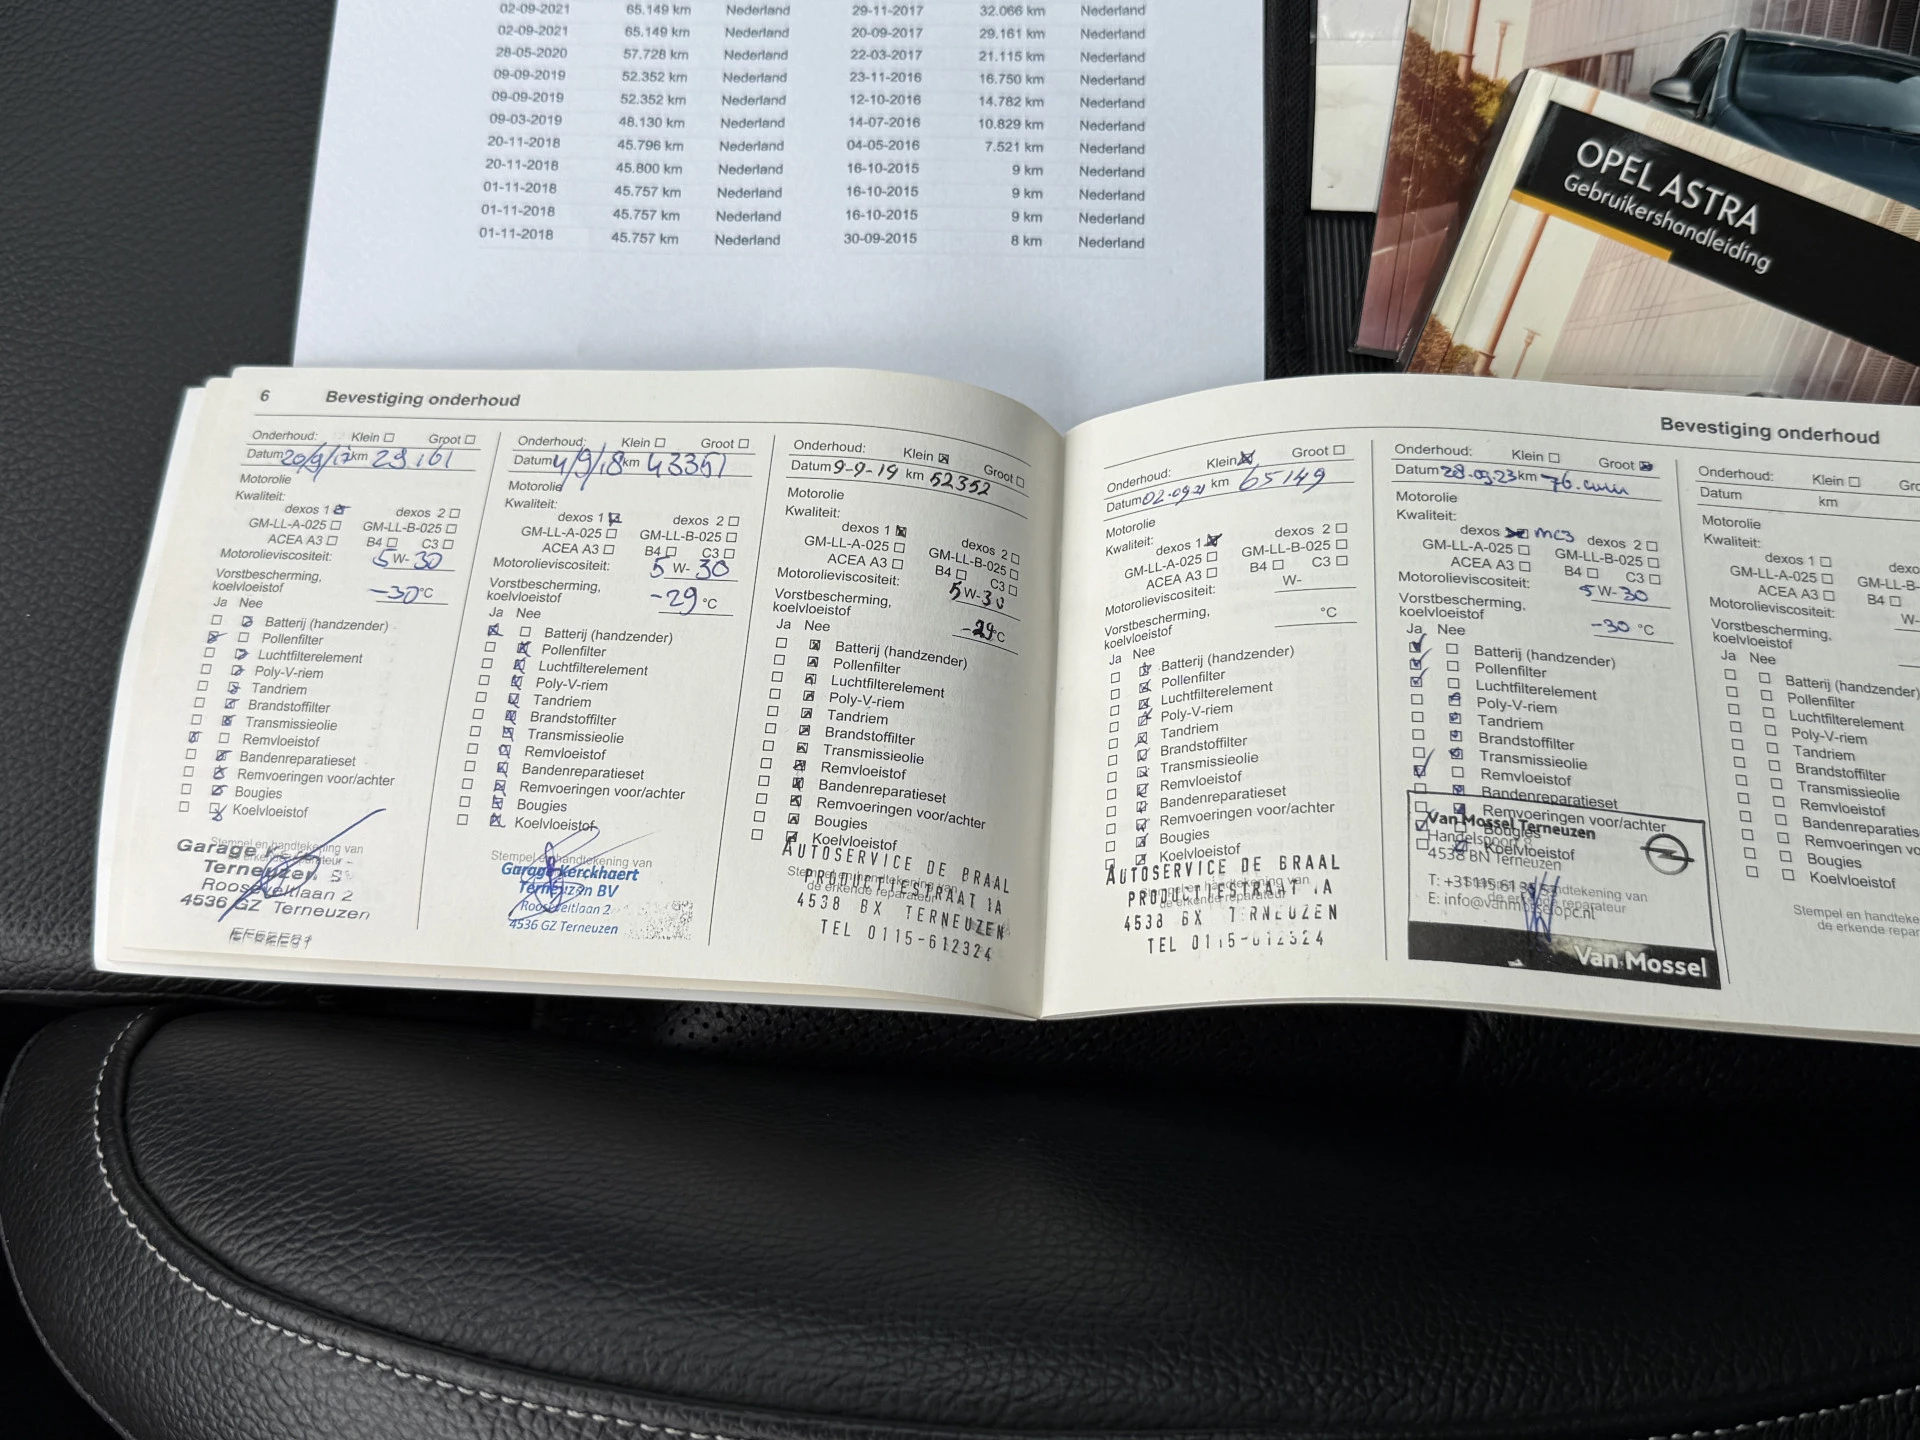 02-09-2021 65.149 km Nederland 29-11-2017 32.066 km Nederland
02-09-2021 65.149 km Nederland 20-09-2017 29.161 km Nederland
28-05-2020 57.728 km Nederland 22-03-2017 21.115 km Nederland
09-09-2019 52.352 km Nederland 23-11-2016 16.750 km Nederland
09-09-2019 52.352 km Nederland 12-10-2016 14.782 km Nederland
09-03-2019 48.130 km Nederland 14-07-2016 10.829 km Nederland
20-11-2018 45.796 km Nederland 04-05-2016 7.521 km Nederland
20-11-2018 45.800 km Nederland 16-10-2015 9 km Nederland
01-11-2018 45.757 km Nederland 16-10-2015 9 km Nederland
01-11-2018 45.757 km Nederland 16-10-2015 9 km Nederland
01-11-2018 45.757 km Nederland 30-09-2015 8 km Nederland
OPEL ASTRA
Gebruikershandleiding
6 Bevestiging onderhoud
Onderhoud: Klein Groot
Datum 20/9/17 km 29161
Motorolie
Kwaliteit:
dexos 1 dexos 2
GM-LL-A-025 GM-LL-B-025
ACEA A3 B4 C3
Motorolieviscositeit: 5 W- 30
Vorstbescherming,
koelvloeistof -30 °C
Ja Nee
Batterij (handzender)
Pollenfilter
Luchtfilterelement
Poly-V-riem
Tandriem
Brandstoffilter
Transmissieolie
Remvloeistof
Bandenreparatieset
Remvoeringen voor/achter
Bougies
Koelvloeistof
Stempel en handtekening van
Garage
Terneuzen
Rooseveltlaan 2
4536 GZ Terneuzen
Onderhoud: Klein Groot
Datum 4/9/18 km 43351
Motorolie
Kwaliteit:
dexos 1 dexos 2
GM-LL-A-025 GM-LL-B-025
ACEA A3 B4 C3
Motorolieviscositeit: 5 W- 30
Vorstbescherming,
koelvloeistof -29 °C
Ja Nee
Batterij (handzender)
Pollenfilter
Luchtfilterelement
Poly-V-riem
Tandriem
Brandstoffilter
Transmissieolie
Remvloeistof
Bandenreparatieset
Remvoeringen voor/achter
Bougies
Koelvloeistof
Stempel en handtekening van
Garage Kerckhaert
Terneuzen BV
Rooseveltlaan 2
4536 GZ Terneuzen
Onderhoud: Klein Groot
Datum 9-9-19 km 52352
Motorolie
Kwaliteit:
dexos 1 dexos 2
GM-LL-A-025 GM-LL-B-025
ACEA A3 B4 C3
Motorolieviscositeit: 5 W- 30
Vorstbescherming,
koelvloeistof -29 °C
Ja Nee
Batterij (handzender)
Pollenfilter
Luchtfilterelement
Poly-V-riem
Tandriem
Brandstoffilter
Transmissieolie
Remvloeistof
Bandenreparatieset
Remvoeringen voor/achter
Bougies
Koelvloeistof
AUTOSERVICE DE BRAAL
Stempel en handtekening van
PRODUCTIESTRAAT 1A
de erkende reparateur
4538 BX TERNEUZEN
TEL 0115-612324
Bevestiging onderhoud
Onderhoud: Klein Groot
Datum 02-09-21 km 65149
Motorolie
Kwaliteit:
dexos 1 dexos 2
GM-LL-A-025 GM-LL-B-025
ACEA A3 B4 C3
Motorolieviscositeit: W-
Vorstbescherming,
koelvloeistof °C
Ja Nee
Batterij (handzender)
Pollenfilter
Luchtfilterelement
Poly-V-riem
Tandriem
Brandstoffilter
Transmissieolie
Remvloeistof
Bandenreparatieset
Remvoeringen voor/achter
Bougies
Koelvloeistof
AUTOSERVICE DE BRAAL
Stempel en handtekening van
PRODUCTIESTRAAT 1A
de erkende reparateur
4538 BX TERNEUZEN
TEL 0115-612324
Onderhoud: Klein Groot
Datum 28.09.23 km 76.
Motorolie
Kwaliteit:
dexos MC3 dexos 2
GM-LL-A-025 GM-LL-B-025
ACEA A3 B4 C3
Motorolieviscositeit: 5 W- 30
Vorstbescherming,
koelvloeistof -30 °C
Ja Nee
Batterij (handzender)
Pollenfilter
Luchtfilterelement
Poly-V-riem
Tandriem
Brandstoffilter
Transmissieolie
Remvloeistof
Bandenreparatieset
Remvoeringen voor/achter
Bougies
Koelvloeistof
Van Mossel Terneuzen
4538 BN Terneuzen
handtekening van
de erkende reparateur
Van Mossel
Onderhoud: Klein
Datum km
Motorolie
Kwaliteit:
dexos 1
GM-LL-A-025 GM-LL-B-
ACEA A3 B4
Motorolieviscositeit: W-
Vorstbescherming,
koelvloeistof
Ja Nee
Batterij (handzender)
Pollenfilter
Luchtfilterelement
Poly-V-riem
Tandriem
Brandstoffilter
Transmissieolie
Remvloeistof
Bandenreparaties
Remvoeringen vo
Bougies
Koelvloeistof
Stempel en handteke
de erkende repar